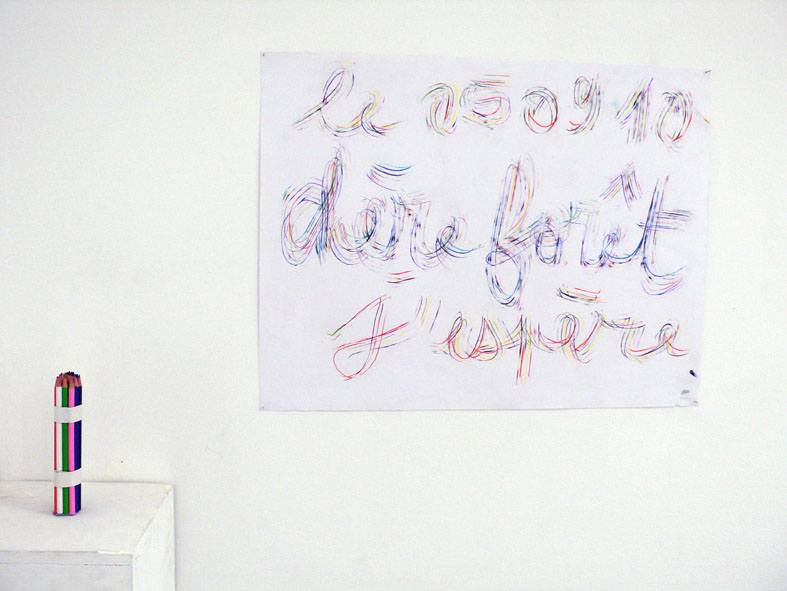 le 25 09 10
chère forêt
J'espère